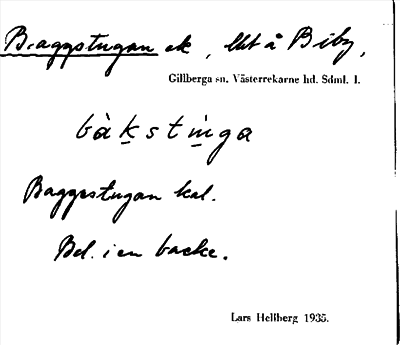 Baggstugan ek, lht å Biby,
Gillberga sn. Västerrekarne hd. Sdml. l.
bàkstùga
Baggestugan kal.
Bel. i en backe.
Lars Hellberg 1935.